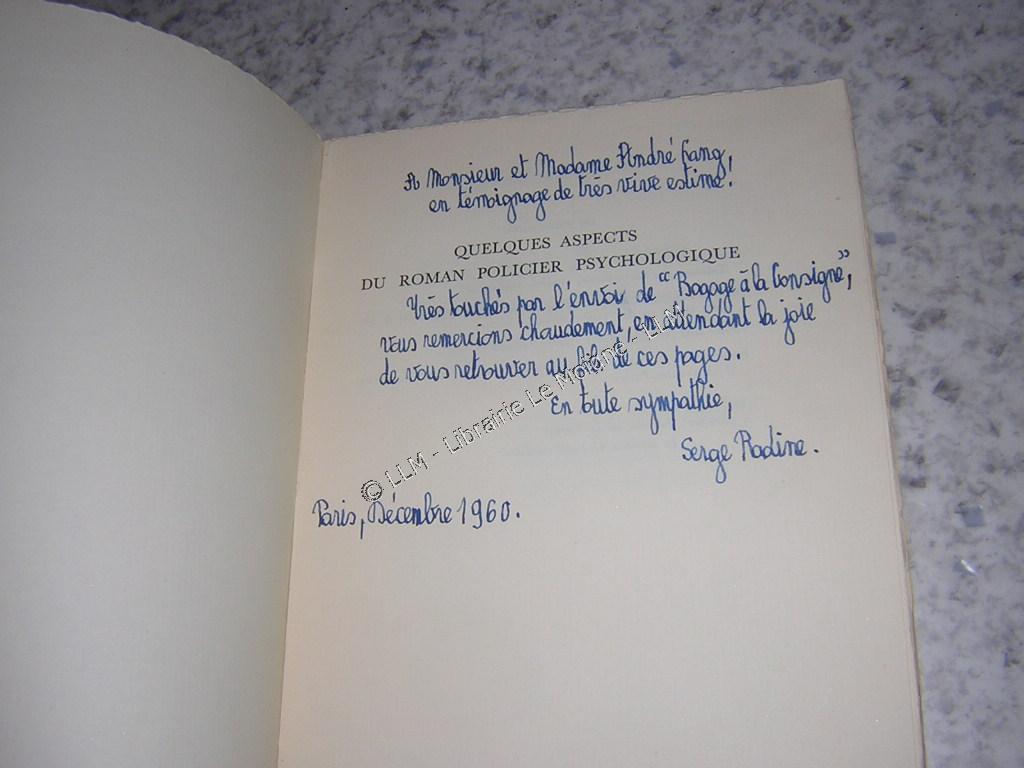 A Monsieur et Madame André Lang,
en témoignage de très vive estime!
QUELQUES ASPECTS
DU ROMAN POLICIER PSYCHOLOGIQUE
Très touchés par l'envoi de "Bagage à la Consigne",
vous remercions chaudement, en attendant la joie
de vous retrouver au fil de ces pages.
En toute sympathie,
Serge Radine.
Paris, Décembre 1960.
© LLM - Librairie Le Moïne - LLM